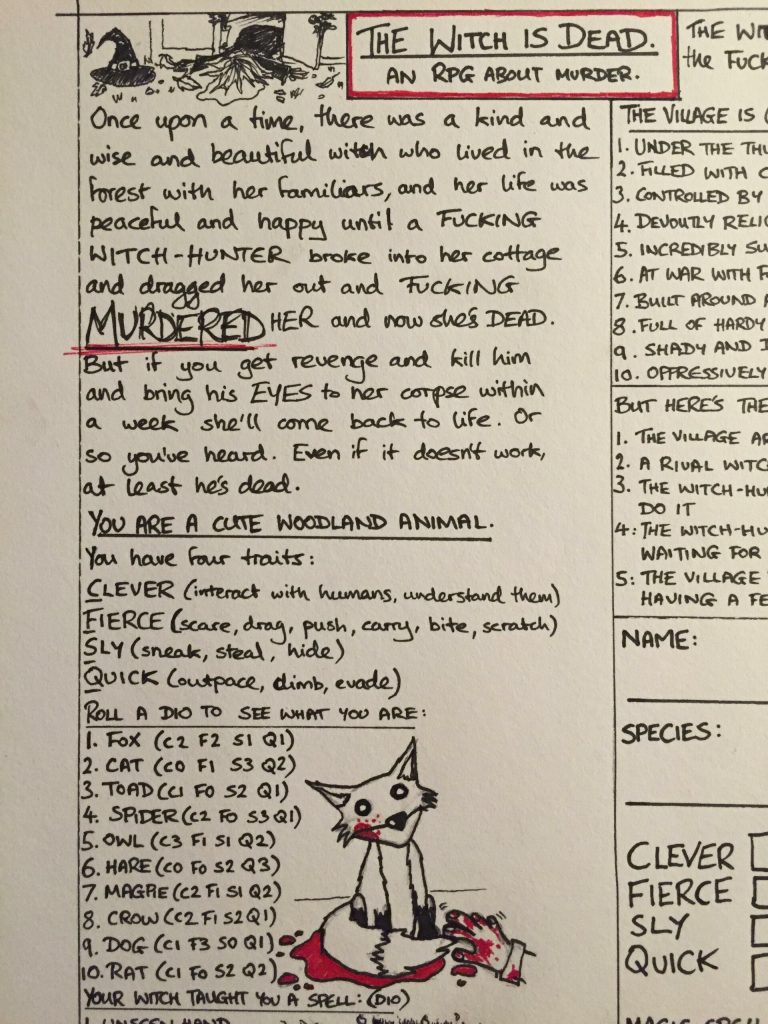 THE WITCH IS DEAD.
AN RPG ABOUT MURDER.
Once upon a time, there was a kind and
wise and beautiful witch who lived in the
forest with her familiars, and her life was
peaceful and happy until a FUCKING
WITCH-HUNTER broke into her cottage
and dragged her out and FUCKING
MURDERED HER and now she's DEAD.
But if you get revenge and kill him
and bring his EYES to her corpse within
a week she'll come back to life. Or
so you've heard. Even if it doesn't work,
at least he's dead.
YOU ARE A CUTE WOODLAND ANIMAL.
You have four traits:
CLEVER (interact with humans, understand them)
FIERCE (scare, drag, push, carry, bite, scratch)
SLY (sneak, steal, hide)
QUICK (outpace, climb, evade)
ROLL A D10 TO SEE WHAT YOU ARE:
1. FOX (C2 F2 S1 Q1)
2. CAT (C0 F1 S3 Q2)
3. TOAD (C1 F0 S2 Q1)
4. SPIDER (C2 F0 S3 Q1)
5. OWL (C3 F1 S1 Q2)
6. HARE (C0 F0 S2 Q3)
7. MAGPIE (C2 F1 S1 Q2)
8. CROW (C2 F1 S2 Q1)
9. DOG (C1 F3 S0 Q1)
10. RAT (C1 F0 S2 Q2)
YOUR WITCH TAUGHT YOU A SPELL: (D10)
1. UNSEEN HAND
THE WIT
the FUCK
THE VILLAGE IS
1. UNDER THE THU
2. FILLED WITH C
3. CONTROLLED BY
4. DEVOUTLY RELIG
5. INCREDIBLY SU
6. AT WAR WITH F
7. BUILT AROUND A
8. FULL OF HARDY
9. SHADY AND
10. OPPRESSIVELY
BUT HERE'S THE
1. THE VILLAGE AR
2. A RIVAL WITC
3. THE WITCH-HU
DO IT
4: THE WITCH-HU
WAITING FOR
5: THE VILLAGE
HAVING A FE
NAME:
SPECIES:
CLEVER
FIERCE
SLY
QUICK